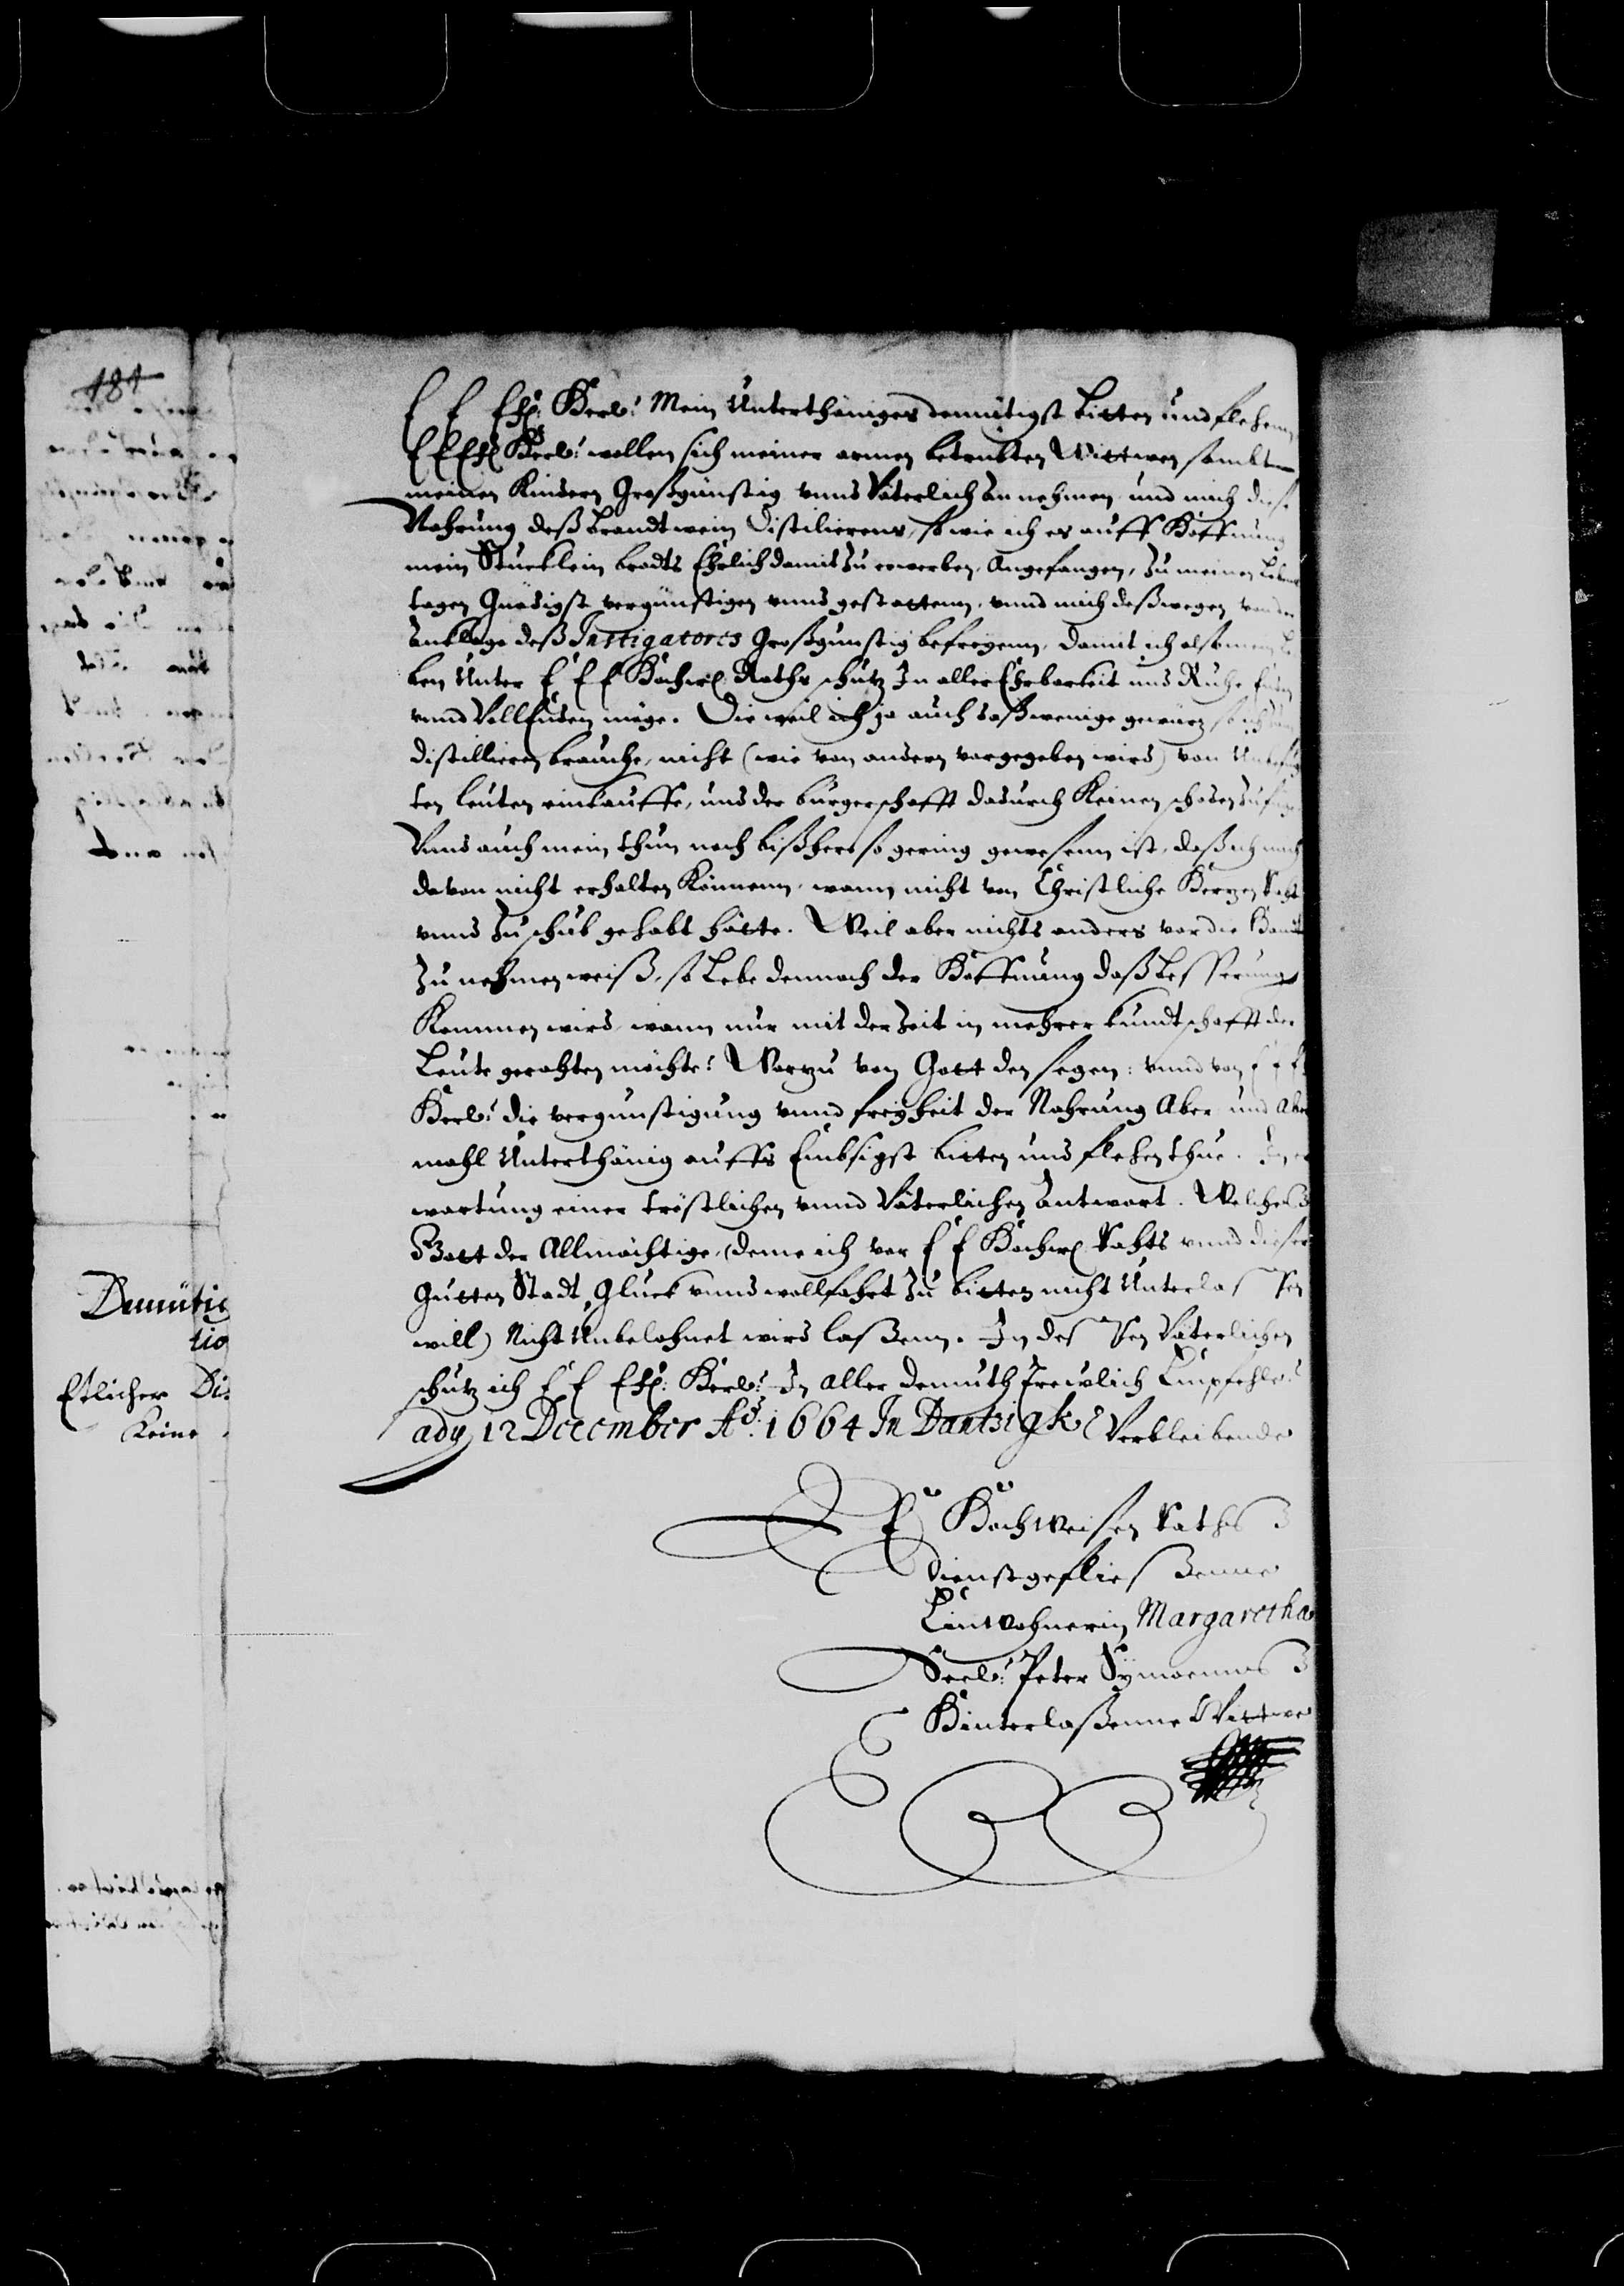 181
E E EH: Herl: Mein Unterthäniges demütigst bitten und flehenn
E E EH Herl: wollen sich meiner armen betrubten Wittwen sambt
meinen Kindern Großgünstig vnnd Väterlich an nehmen, und mich diese
Nahrung deß brandtwein Distilierens, so wie ich es auff Hoffnung
mein Stucklein brodts Ehrlich damit zu erwerben, Angefangen, zu meinen Lebens
tagen Gnädigst vergünstigen vnnd gestattenn, vnnd mich deßwegen von der
Anklage deß Instigatores Großgunstig befreyenn, damit ich also mein
ben Unter E E E Hochw: Rahts schutz In aller Ehrbarkeit und Ruhe
vnnd Vollenden möge. Die weil ich ja auch daß wenige gewürz so ich
distillieren brauche, nicht (wie von andern vorgegeben wird) von
ten leuten einkauffe, und der bürgerschafft dadurch Keinen schaden
Vnnd auch mein thun noch bißhero so gering gewesenn ist, daß ich mich
davon nicht erhalten Könnenn, wann nicht von Christliche Herzen
vnnd zuschub gehabt hätte. Weil aber nichts anders vor die Handt
zu nehmen weiß, so Lebe dennoch der Hoffnung daß besserung
Kommen wird, wann nur mit der zeit in mehrer kundtschafft der
Leute gerahten möchte: Worzu von Gott den segen: vnnd von E E E
Herl: die vergunstigung vnnd freyheit der Nahrung Aber und Aber
mahl Unterthänig auffs Embsigst bitten und flehen thue. In er
wartung einer tröstlichen vnnd Väterlichen Antwort. Welches
Gott der Allmächtige, (deme ich vor E E Hochw: Rahts vnnd dieser
Gutten Stadt, Gluck vnnd wollfahrt zu bitten nicht Unterlassen
will) Nicht Unbelohnet wird laßenn. In dessen Väterlichen
schutz ich E E EH: Herl: In aller demuth trewlich Empfehle.
ady 12 December Aō: 1664 In Dantzigk Verbleibende
E Hochweisen Raths
dienstgefließenne
Einwohnerin Margaretha
Seel: Peter Sÿmoenns
Hinterlaßenne Wittwe
Demütig
tio
Etlicher Dis
Keine